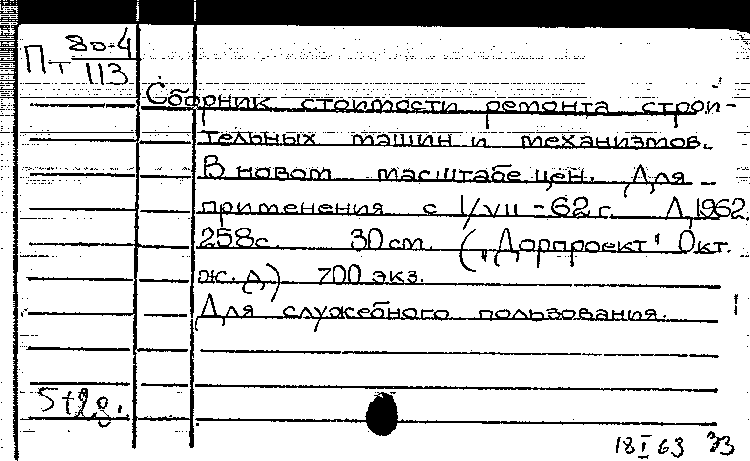 Пт 80-4
113
Сборник стоимости ремонта строи-
тельных машин и механизмов.
В новом масштабе цен. Для
применения с 1/VII-62 г. Л, 1962.
258с. 30 см. („Дорпроект" Окт.
ж. д.) 700 экз.
Для служебного пользования.
18 I 63